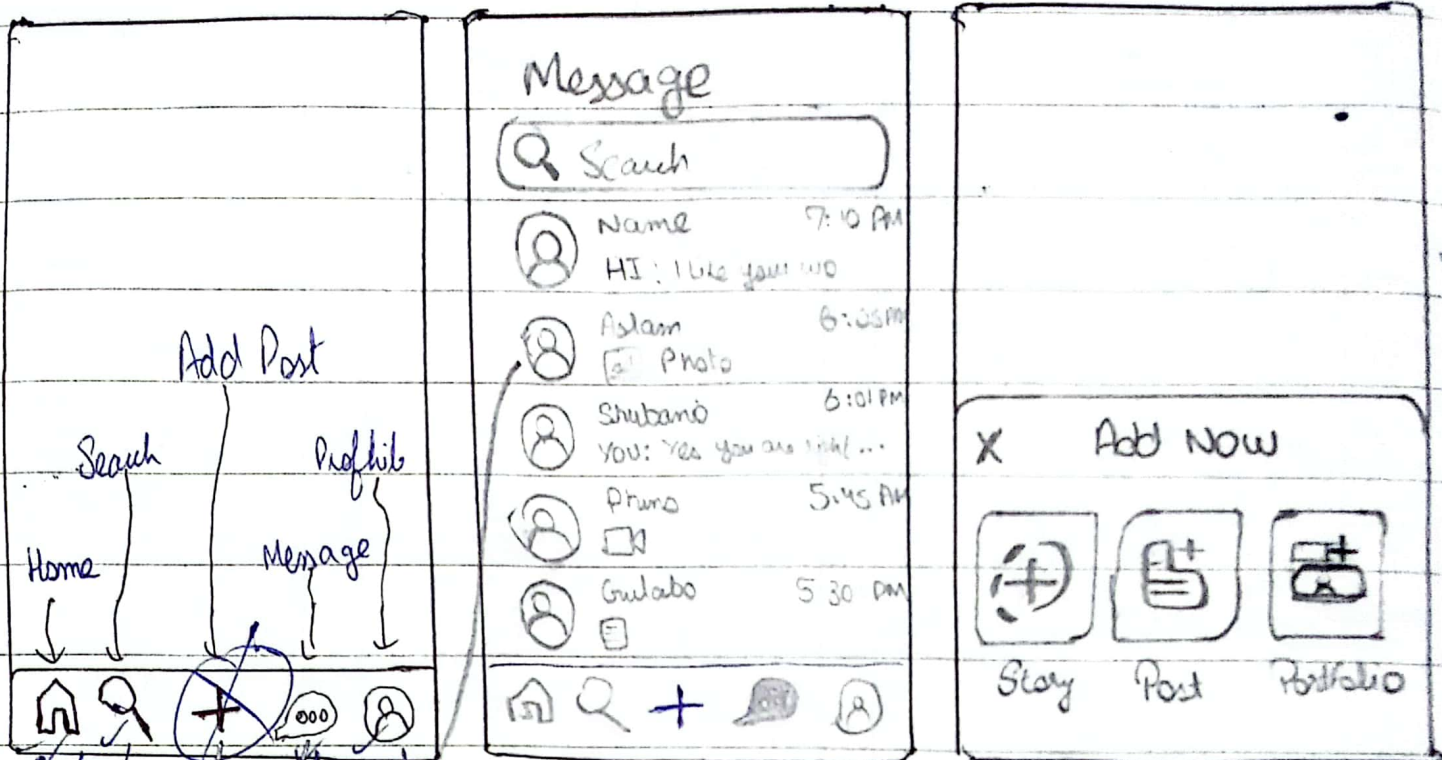 Add Post
Search
Profhile
Home
Message
Message
Search
Name 7:10 PM
HI : I like your wo
Aslam 6:05 PM
Photo
Shubano 6:01 PM
YOU: Yes you are right...
5:45 AM
Gulabo 5 30 PM
X Add Now
Story Post Portfolio